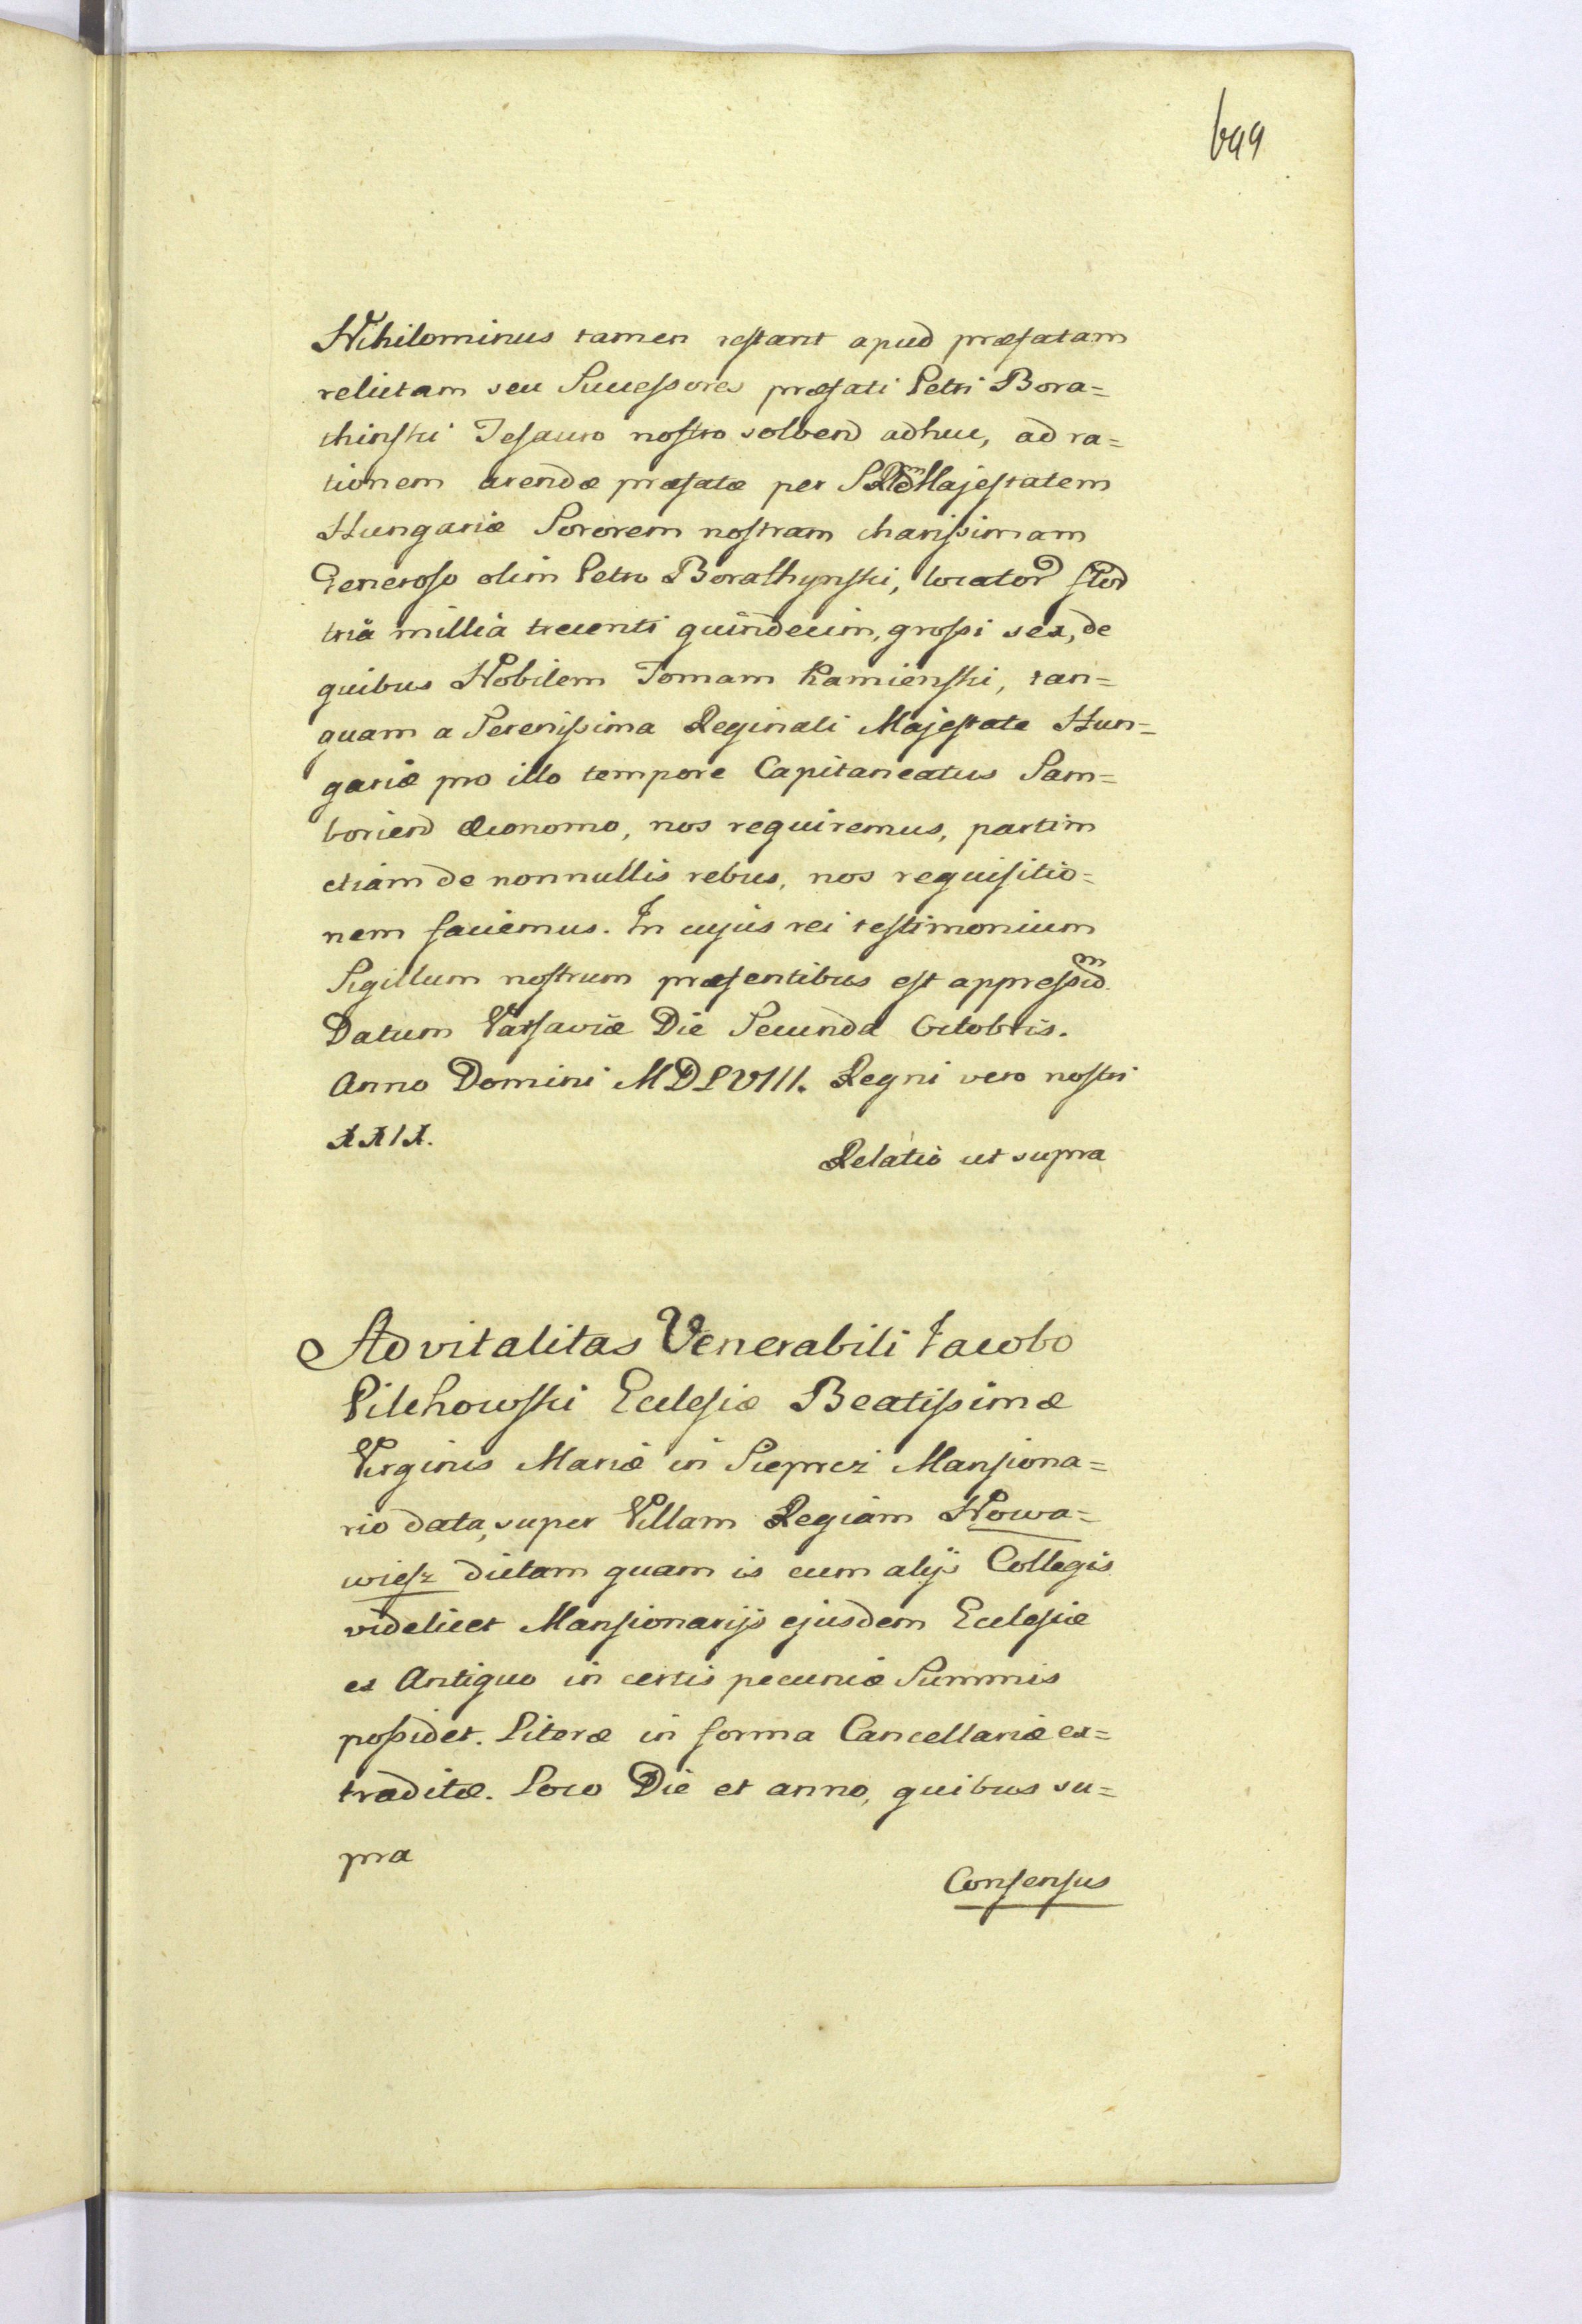 699
Nihilominus tamen restant apud præfatam
relictam seu Successores præfati Petri Bora=
thinski Tesauro nostro solvend adhuc, ad ra=
tionem arendæ præfatæ per Majestatem
Hungariæ Sororem nostram charissimam
Generoso olim Petro Borathynski, locator flor
tria millia trecenti quindecim, grossi sex, de
quibus Nobilem Tomam Kamienski, tan=
quam a Serenissima Reginali Majestate Hun=
gariæ pro illo tempore Capitaneatus Sam=
boriend Œconomo, nos requiremus, partim
etiam de nonnullis rebus, nos requisitio=
nem faciemus. In cujus rei testimonium
Sigillum nostrum præsentibus est appressum.
Datum Varsaviæ Die Secunda Octobris.
Anno Domini MDLVIII. Regni vero nostri
XXIX.
Relatio ut supra
Advitalitas Venerabili Jacobo
Pilchowski Eclesiæ Beatissimæ
Virginis Mariæ in Sieprcz Mansiona=
rio data, super Villam Regiam Nowa=
wiesz dictam quam is cum alijs Collegis
videlicet Mansionarijs ejusdem Eclesiæ
ex Antiquo in certis pecuniæ Summis
possidet. Literæ in forma Cancellariæ ex=
traditæ. Loco Die et anno, quibus su=
pra
Consensus